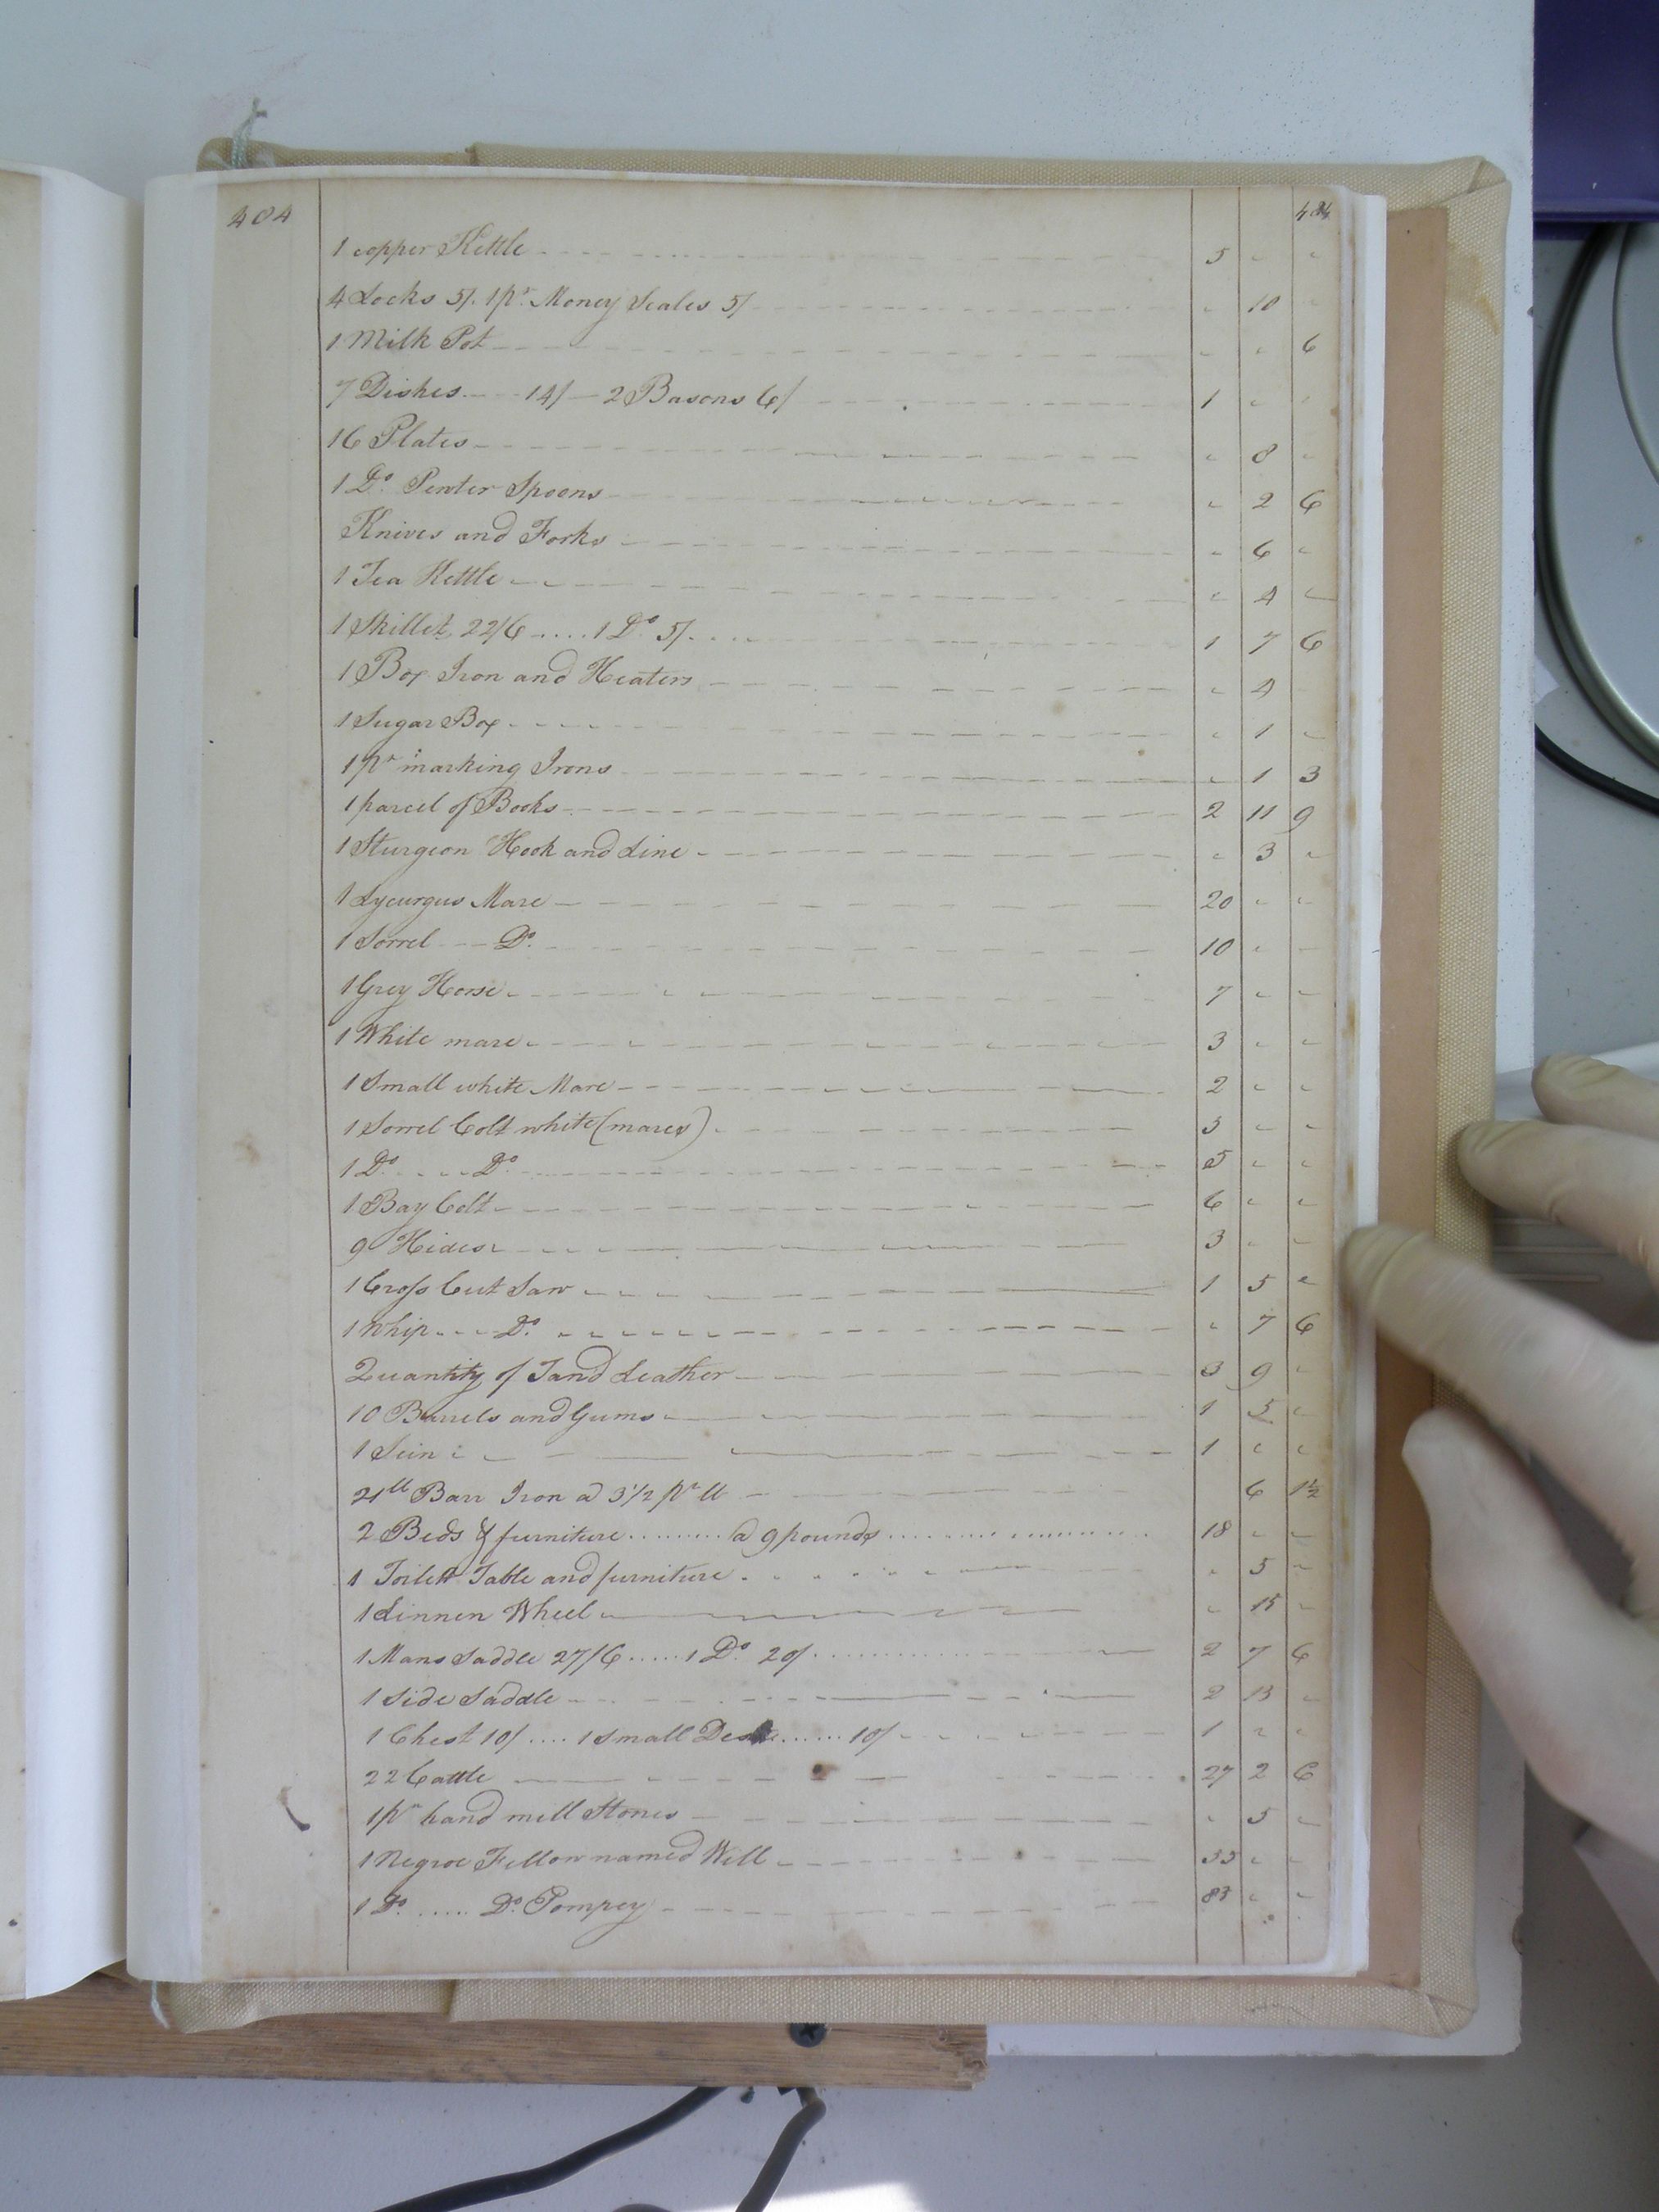 404 404
1 copper Kettle 5 " "
4 Locks 5/. 1 pr. Money Scales 5/ " 10 "
1 Milk Pot " " 6
7 Dishes 14/ 2 Basons 6/ 1 " "
16 Plates " 8 "
1 Do. Pewter Spoons " 2 6
Knives and Forks " 6 "
1 Tea Kettle " 4 "
1 Skillet 22/6 ..... 1 Do 5/. 1 7 6
1 Box Iron and Heaters " 4
1 Sugar Box " 1 "
1 pr marking Irons " 1 3
1 parcel of Books 2 11 9
1 Sturgeon Hook and Line " 3 "
1 Lycurgus Mare 20 " "
1 Sorrel Do. 10 " "
1 Grey Horse 7 " "
1 White mare 3 " "
1 Small white Mare 2 " "
1 Sorrel Colt white (mares) 3 " "
1 Do. Do. 5 " "
1 Bay Colt 6 " "
9 Hides 3 " "
1 Cross Cut Saw 1 5 "
1 Whip Do. " 7 6
Quantity of Tand Leather 3 9 "
10 Barrels and Gums 1 5 "
1 Sein 1 " "
21 ll Barr Iron a 3 1/2 pr ll 6 1 1/2
2 Beds & furniture ......... a 9 pounds 18 " "
1 Toilett Table and furniture " 5 "
1 Linnen Wheel " 15 "
1 Mans Saddle 27/6 ...... 1 Do. 20/ 2 7 6
1 Side Saddle 2 15 "
1 Chest 10/ .... 1 small Desk ...... 10/ 1 " "
22 Cattle 27 2 6
1 pr hand mill Stones " 5 "
1 Negroe Fellow named Will 55 " "
1 Do. ..... Do. Pompey 85 " "